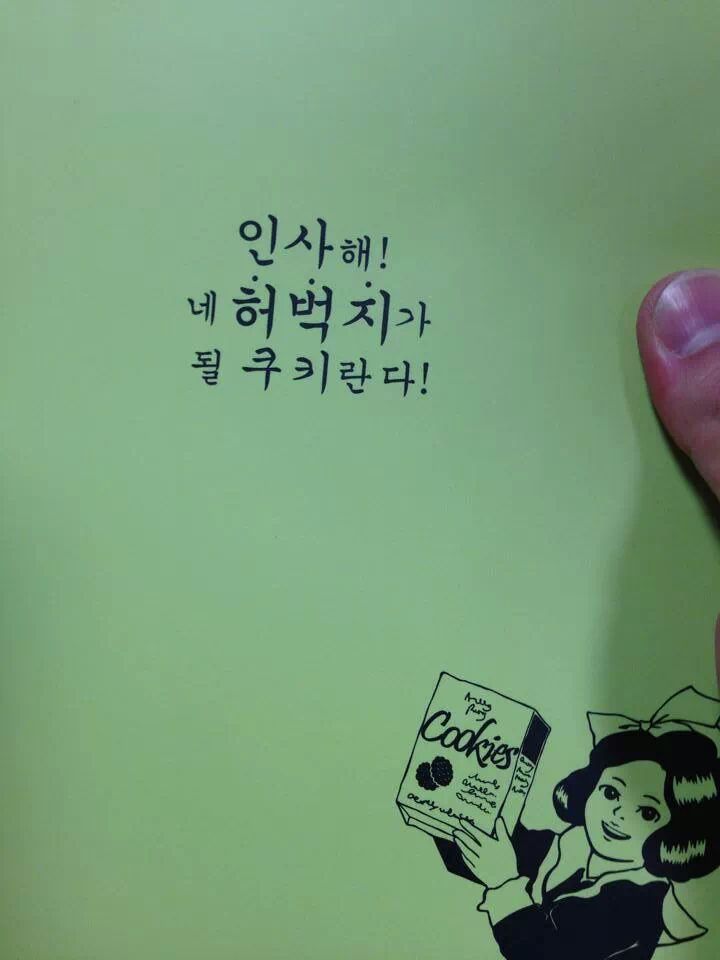 인사해!
네 허벅지가
될 쿠키란다!
Cookies